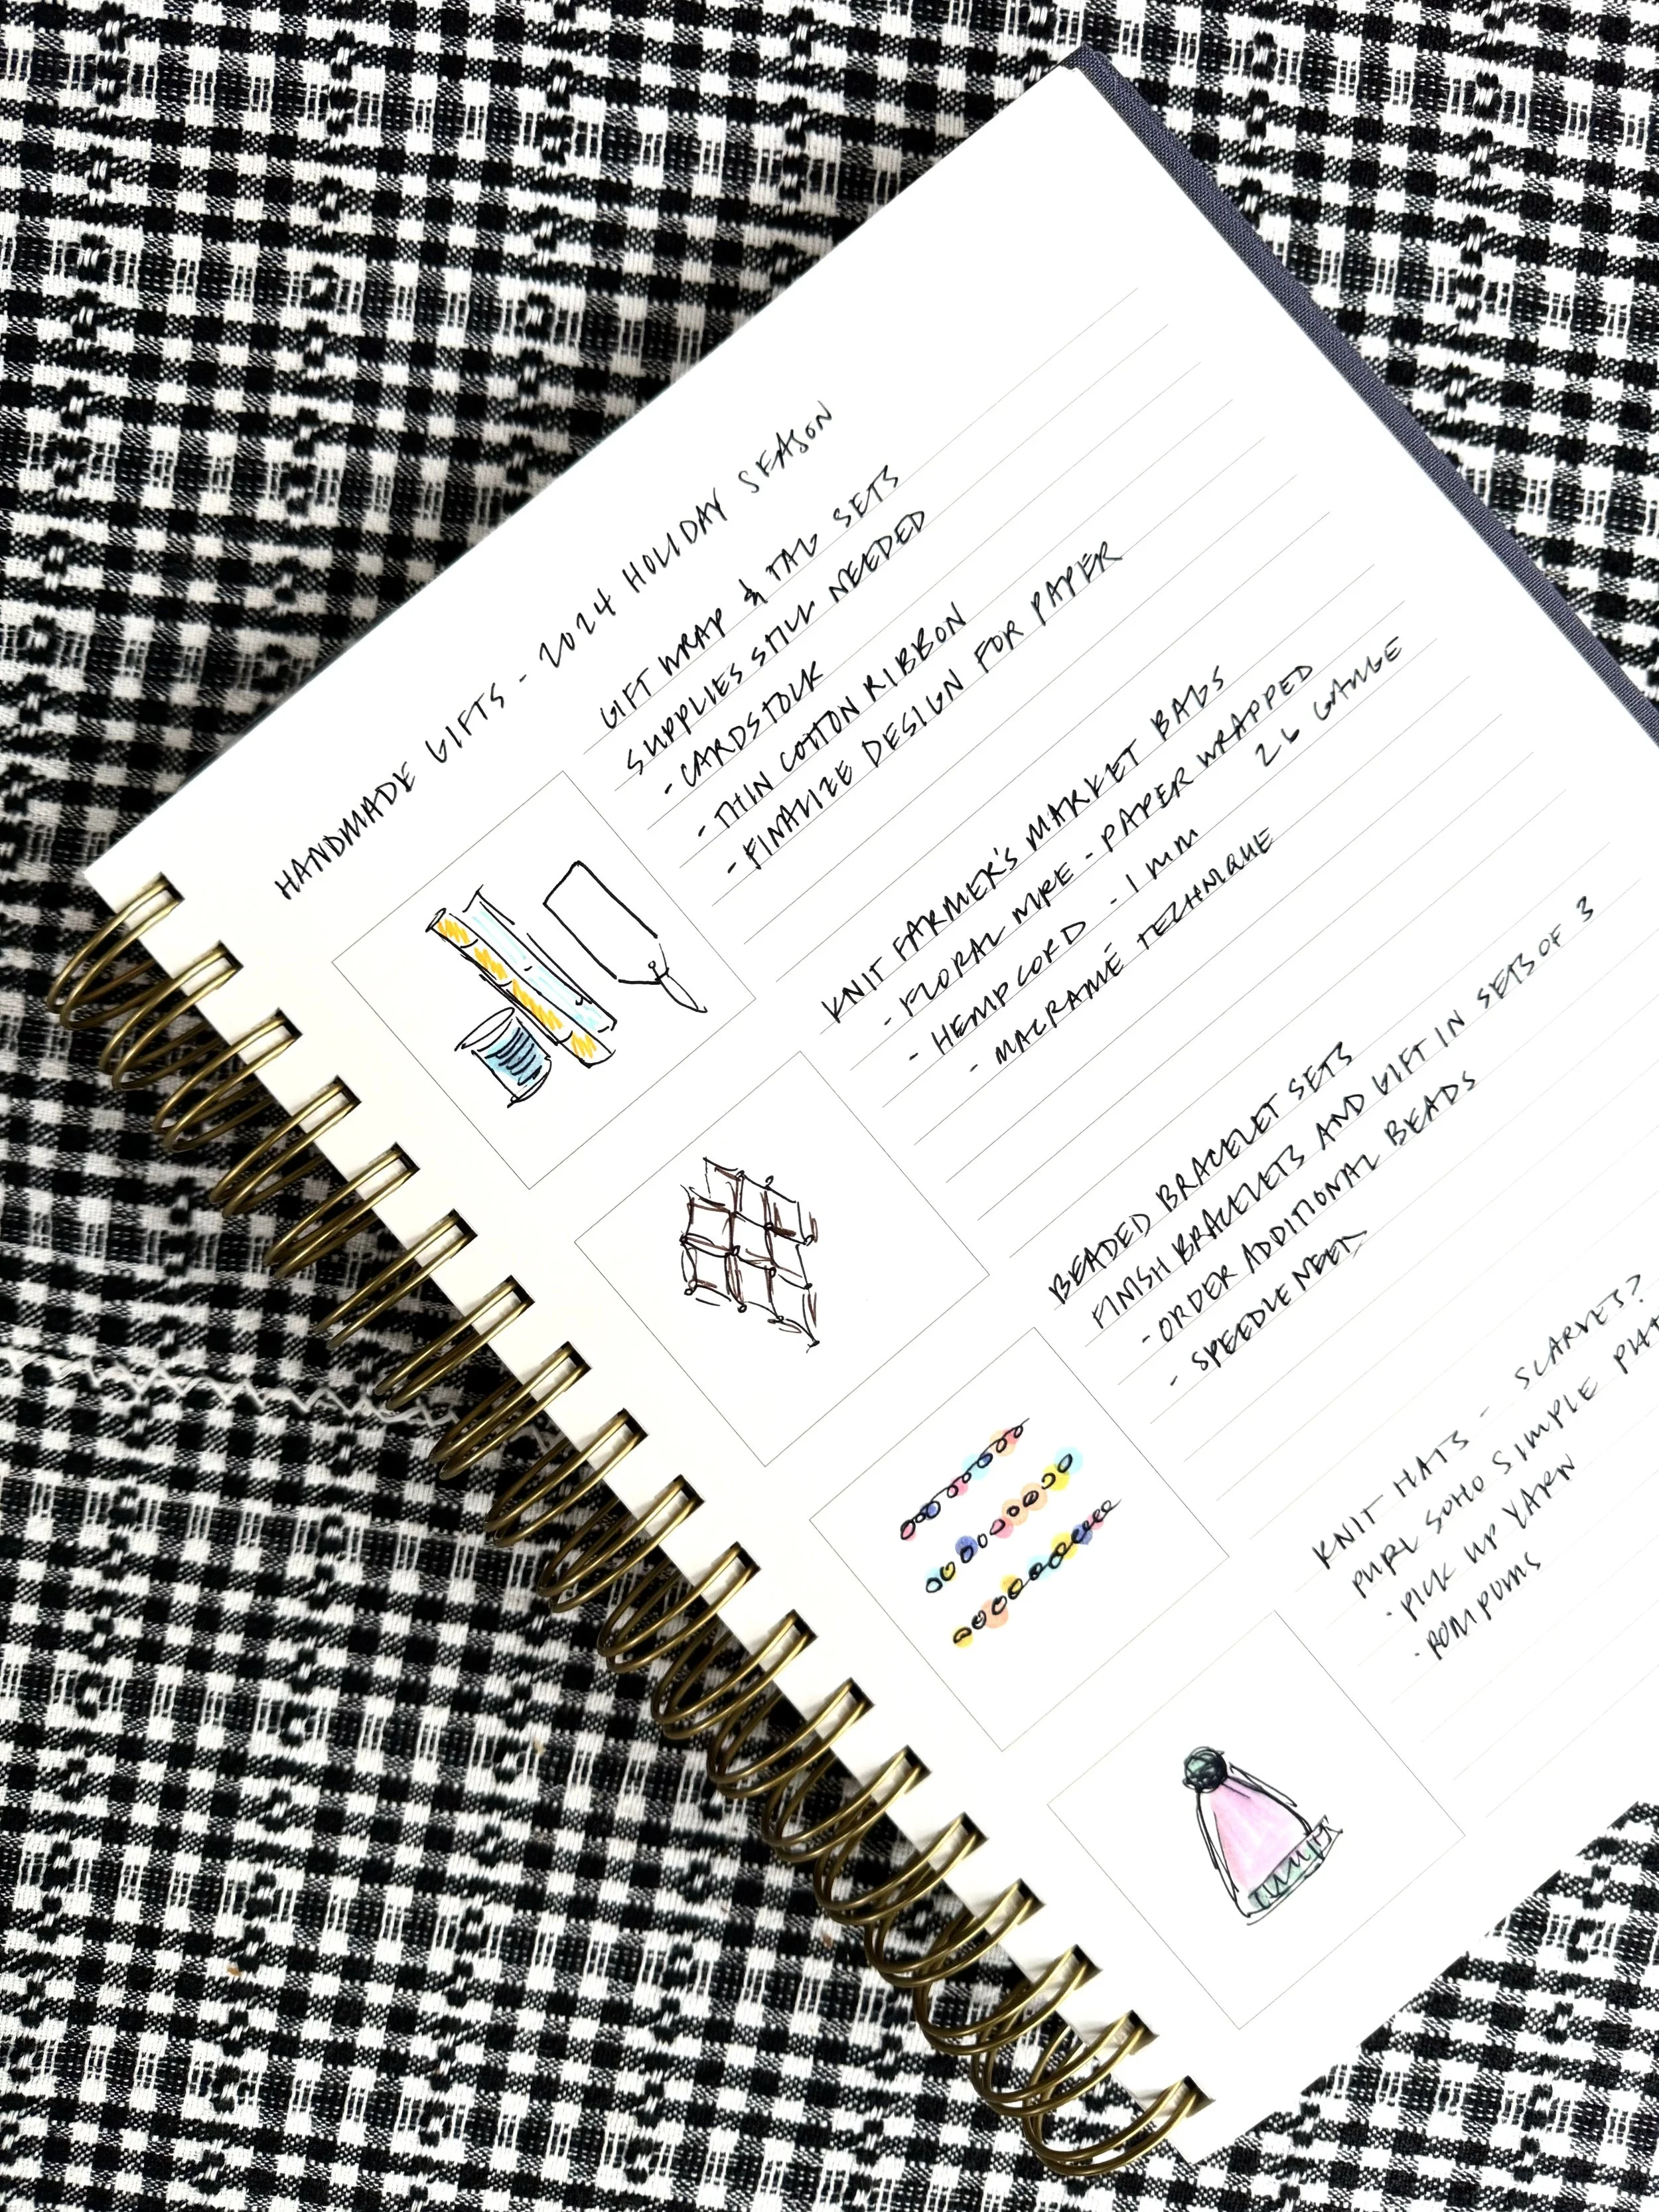 HANDMADE GIFTS - 2024 HOLIDAY SEASON
GIFT WRAP & TAG SETS
SUPPLIES STILL NEEDED
- CARDSTOCK
- THIN COTTON RIBBON
- FINALIZE DESIGN FOR PAPER
KNIT FARMER'S MARKET BAGS
- FLORAL WIRE - PAPER WRAPPED 26 GAUGE
- HEMP CORD - 1 MM
- MACRAMÉ TECHNIQUE
BEADED BRACELET SETS
FINISH BRACELETS AND GIFT IN SETS OF 3
- ORDER ADDITIONAL BEADS
- SPEEDLE NEEDS
KNIT HATS - SCARVES?
PURL SOHO SIMPLE
- PICK UP YARN
- POMPOMS